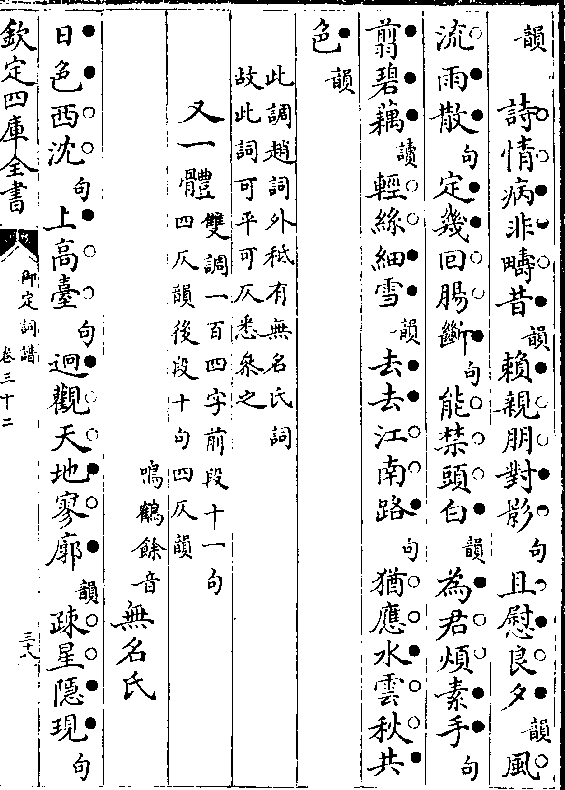 韻 詩情病非疇昔韻賴親朋對影句且慰良夕韻風
流雨散句定幾回腸斷句能禁頭白韻為君煩素手句
翦碧藕讀輕絲細雪韻去去江南路句猶應水雲秋共
色韻
此調趙詞外秪有無名氏詞
故此詞可平可仄悉叅之
又一體雙調一百四字前段十一句
四仄韻後段十句四仄韻
鳴鶴餘音無名氏
日色西沈句上高臺句迥觀天地寥廓韻疎星隱現句
欽定四庫全書
御定詞譜
卷三十二
三十八